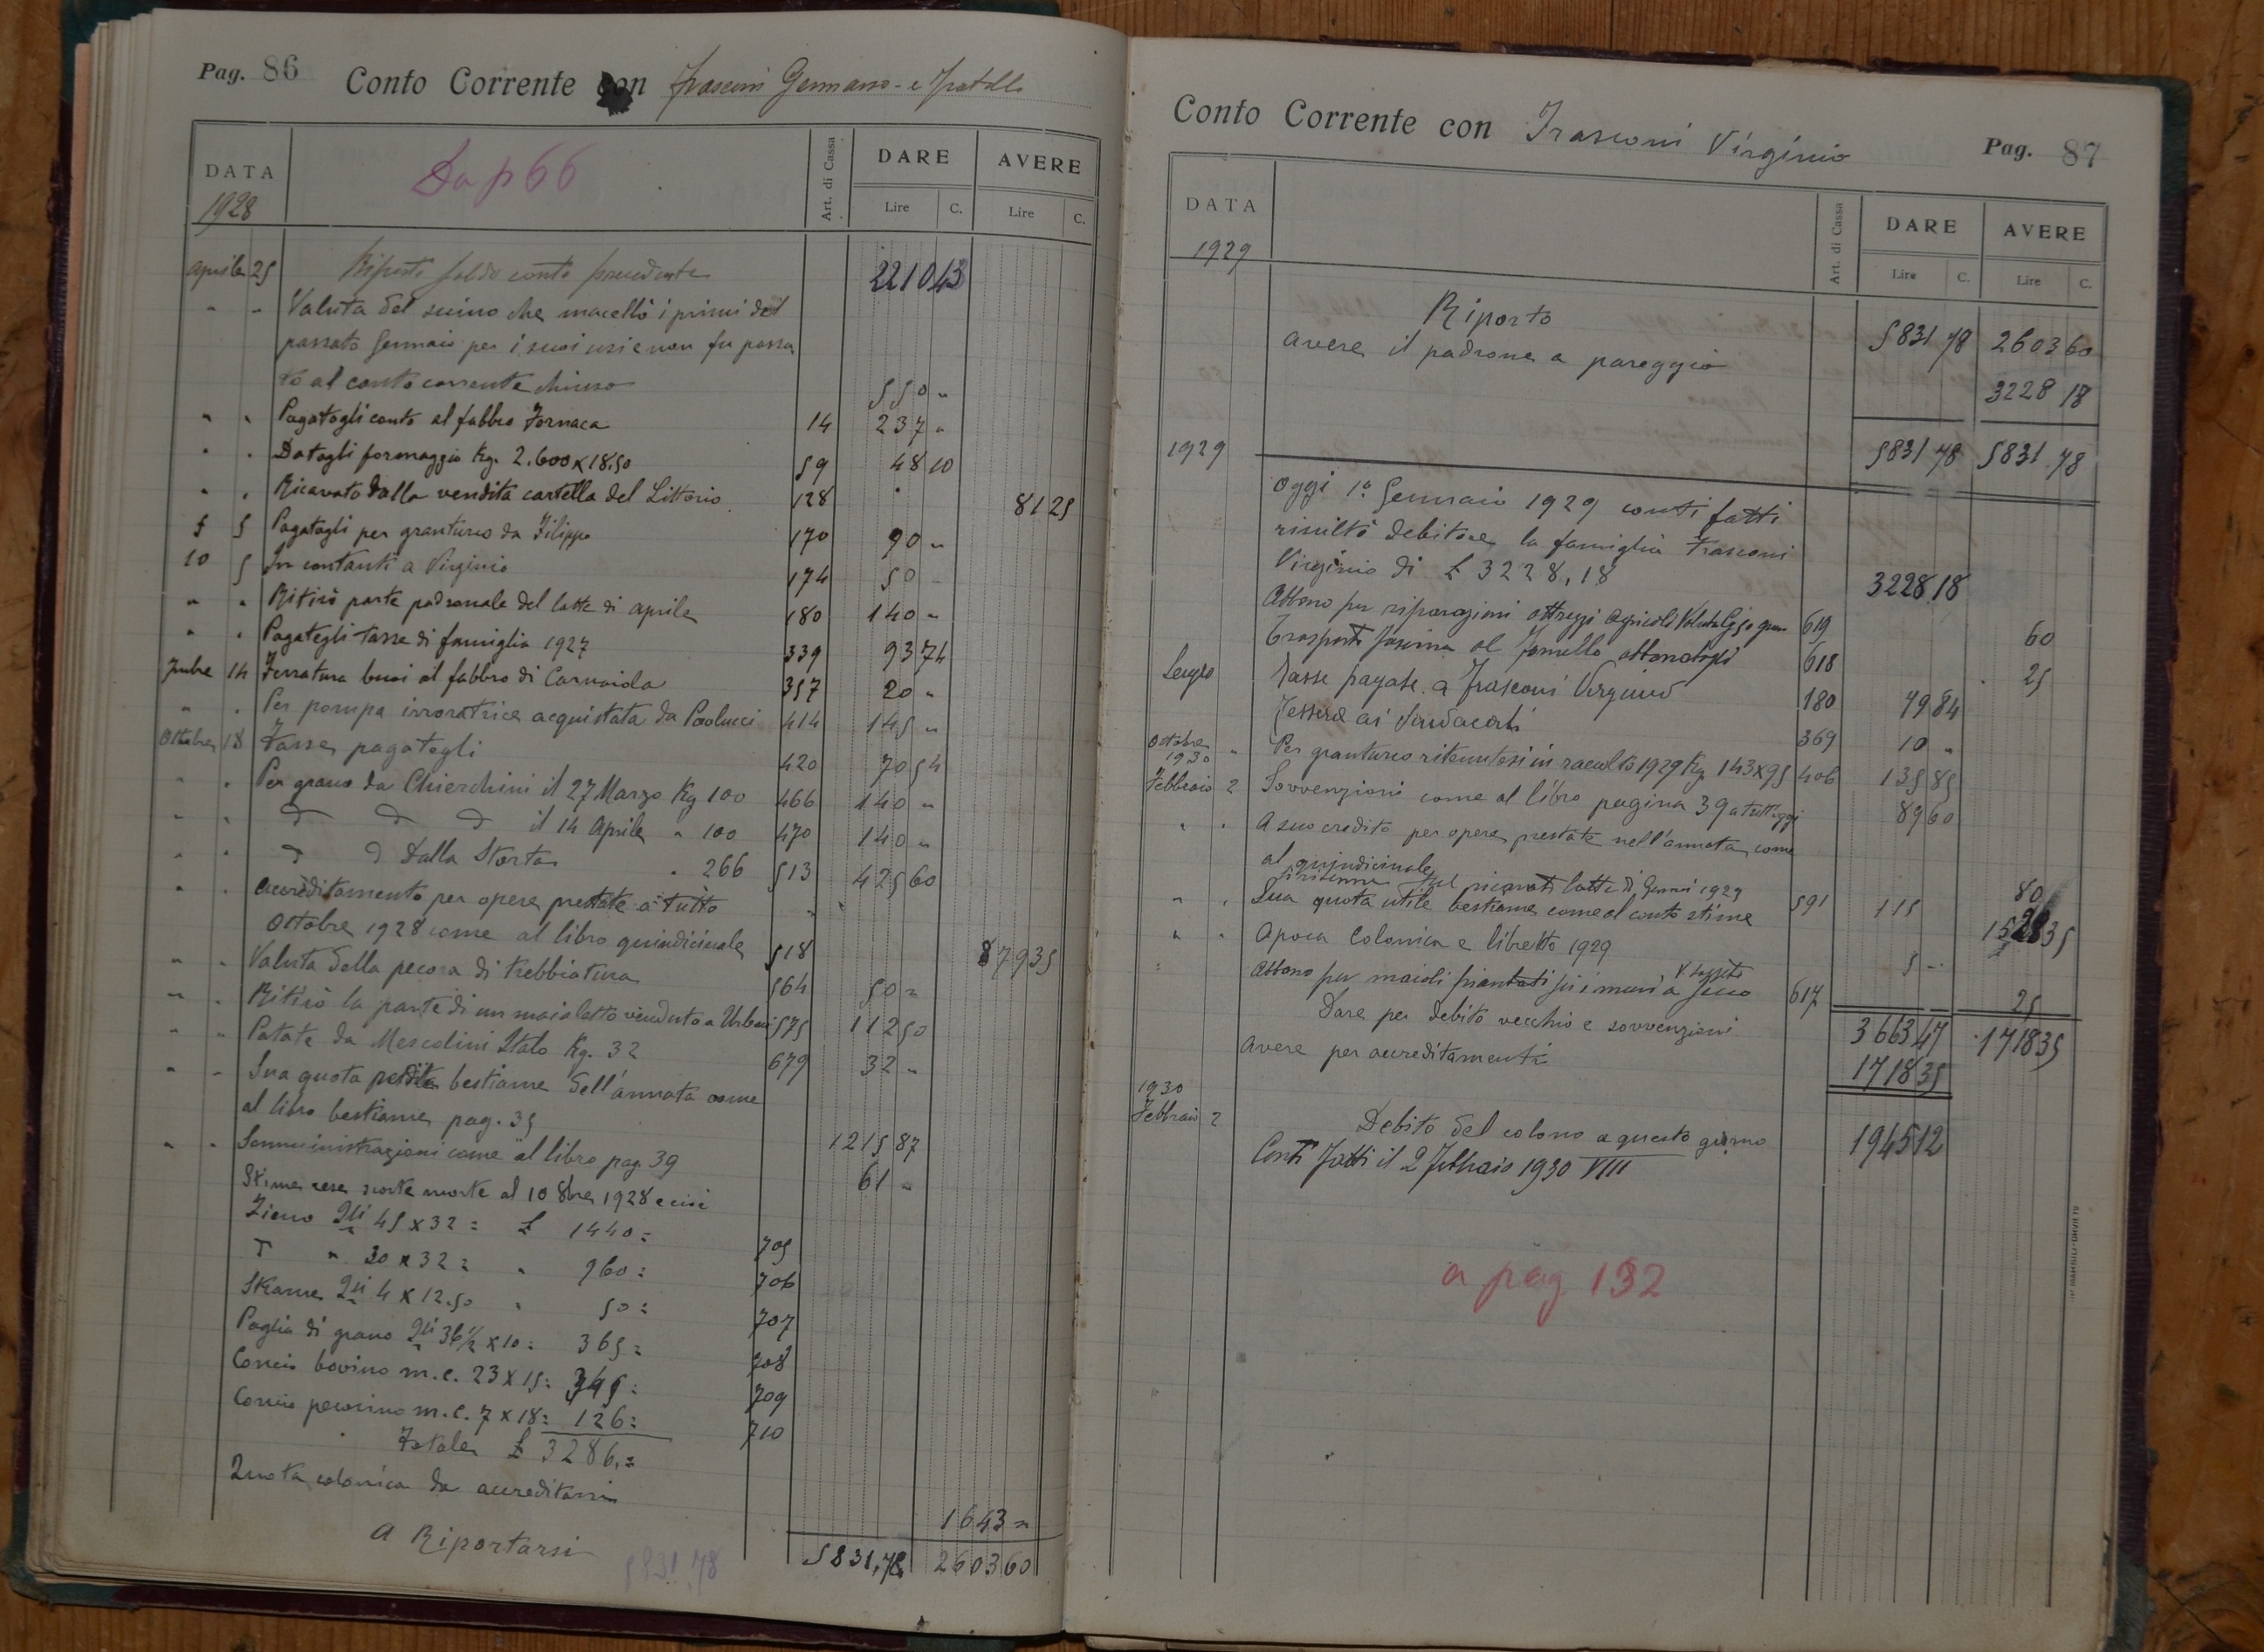 Pag. 86 Conto Corrente con Frasconi Germano - e Fratello
DATA Da p 66 Art. di Cassa DARE AVERE
1928 Lire C. Lire C.
Aprile 25 Riporto saldo conto precedente 2210 43
" " Valuta del suino che macellò i primi del
passato Gennaio per i suoi usi e non fu passa
to al conto corrente chiuso 550 "
" " Pagatogli conto al fabbro Fornaca 14 237 "
" " Datogli formaggio Kg. 2.600 x 18.50 59 48 10
" " Ricavato dalla vendita cartella del Littorio 128 81 25
5 5 Pagatogli per granturco da Filippo 170 90 "
10 5 In contanti a Virginio 174 50 "
" " Ritirò parte padronale del latte di aprile 180 140 "
" " Pagategli tasse di famiglia 1927 339 93 74
7mbre 14 Ferratura buoi al fabbro di Carnaiola 357 20 "
" " Per pompa irroratrice acquistata da Paolucci 414 145 "
Ottobre 18 Tasse pagategli 420 70 54
" " Per grano da Chierchini il 27 Marzo Kg 100 466 140 "
" " il 14 Aprile " 100 470 140 "
" " dalla Storta " 266 513 425 60
" " Accreditamento per opere prestate a tutto
Ottobre 1928 come al libro quindicinale 518 879 35
" " Valuta della pecora di trebbiatura 564 50 "
" " Ritirò la parte di un maialetto venduto a Urbani 575 112 50
" " Patate da Mescolini Italo Kg. 32 679 32 "
" " Sua quota perdita bestiame dell'annata come
al libro bestiame pag. 35 1215 87
" " Somministrazioni come al libro pag. 39 61 "
Stima rese scorte morte al 10 8bre 1928 e cioè
Fieno Qli 45 x 32 = £ 1440 = 705
" " 30 x 32 = " 960 = 706
Strame Qli 4 x 12.50 " 50 = 707
Paglia di grano Qli 36 1/2 x 10 = 365 = 708
Concio bovino m.c. 23 x 15 = 345 = 709
Concio pecorino m.c. 7 x 18 = 126 = 710
Totale £ 3286, =
Quota colonica da accreditarsi 1643 "
A Riportarsi 5831,78 2603 60
5831,78
Conto Corrente con Frasconi Virginio Pag. 87
DATA Art. di Cassa DARE AVERE
1929 Lire C. Lire C.
Riporto 5831 78 2603 60
Avere il padrone a pareggio 3228 18
1929 5831 78 5831 78
Oggi 1° Gennaio 1929 conti fatti
risultò debitore la famiglia Frasconi
Virginio di £ 3228,18 3228 18
Abbono per riparazioni attrezzi agricoli 619 60
Trasporti fascina al fornello 618 25
Luglio Tasse pagate a Frasconi Virginio 180 79 84
Tessere ai sindacati 369 10 "
Ottobre " Per granturco ritenutosi in raccolto 1929 Kg. 143 x 95 406 135 85
1930
Febbraio 2 Sovvenzioni come al libro pagina 39 a tutt'oggi 89 60
" " A suo credito per opere prestate nell'annata come
al quindicinale 80
ricavati latte di 1929 591 115
" " Sua quota utile bestiame come al conto stime 1528 35
" " Apoca Colonica e libretto 1929 5 "
Abbono per maioli piantati su i muri a secco 617 25
Dare per debito vecchio e sovvenzioni 3663 47 1718 35
Avere per accreditamenti 1718 35
1930
Febbraio 2 Debito del colono a questo giorno 1945 12
Conti fatti il 2 Febbraio 1930 VIII
a pag 132